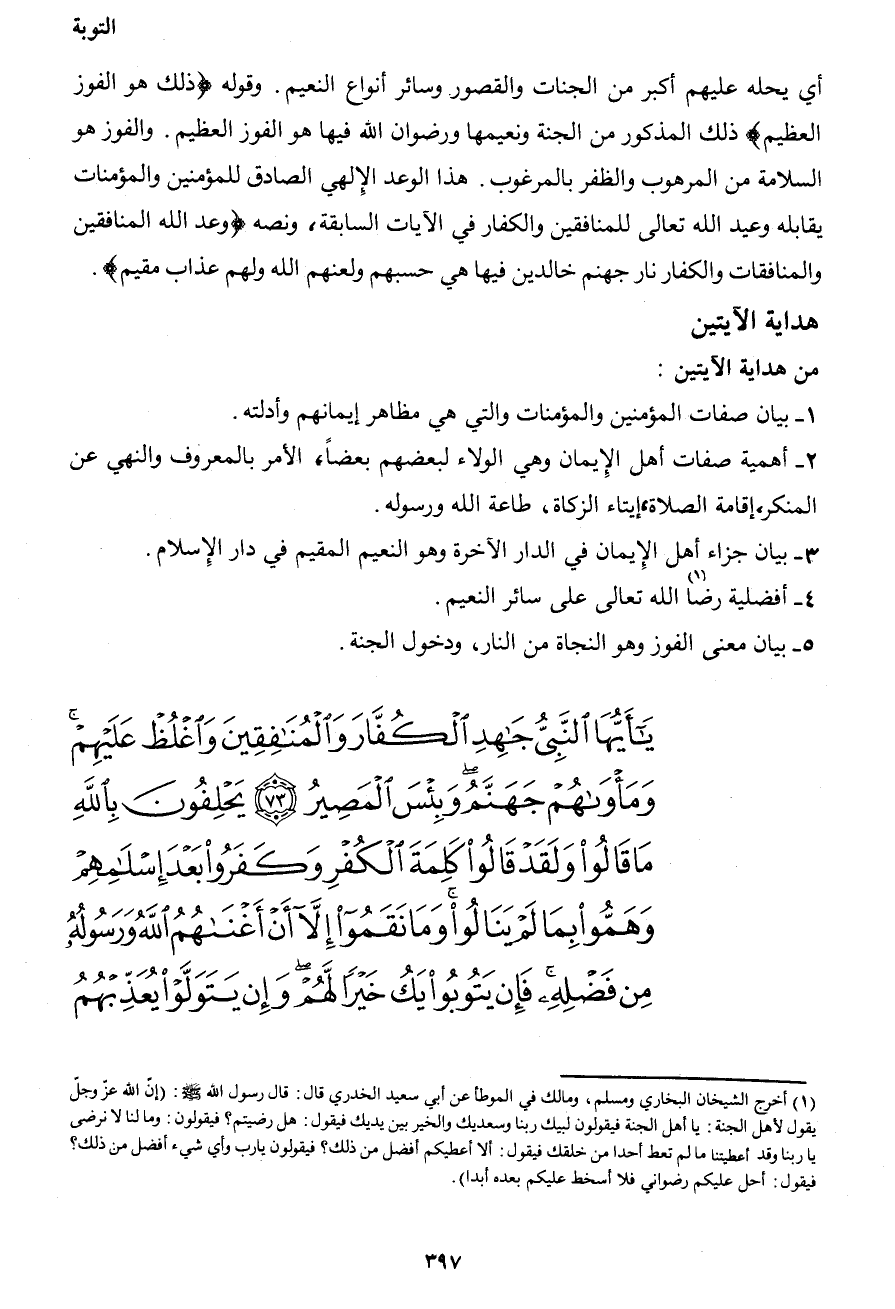 التوبة
أي يحله عليهم أكبر من الجنات والقصور وسائر أنواع النعيم. وقوله ﴿ذلك هو الفوز
العظيم﴾ ذلك المذكور من الجنة ونعيمها ورضوان الله فيها هو الفوز العظيم. والفوز هو
السلامة من المرهوب والظفر بالمرغوب. هذا الوعد الإلهي الصادق للمؤمنين والمؤمنات
يقابله وعيد الله تعالى للمنافقين والكفار في الآيات السابقة، ونصه ﴿وعد الله المنافقين
والمنافقات والكفار نار جهنم خالدين فيها هي حسبهم ولعنهم الله ولهم عذاب مقيم﴾.
هداية الآيتين
من هداية الآيتين :
١- بيان صفات المؤمنين والمؤمنات والتي هي مظاهر إيمانهم وأدلته.
٢- أهمية صفات أهل الإيمان وهي الولاء لبعضهم بعضاً، الأمر بالمعروف والنهي عن
المنكر، إقامة الصلاة، إيتاء الزكاة، طاعة الله ورسوله.
٣- بيان جزاء أهل الإيمان في الدار الآخرة وهو النعيم المقيم في دار الإسلام.
٤- أفضلية رضا(١) الله تعالى على سائر النعيم.
٥- بيان معنى الفوز وهو النجاة من النار، ودخول الجنة.
يَٰٓأَيُّهَا ٱلنَّبِيُّ جَٰهِدِ ٱلْكُفَّارَ وَٱلْمُنَٰفِقِينَ وَٱغْلُظْ عَلَيْهِمْ ۚ
وَمَأْوَىٰهُمْ جَهَنَّمُ ۖ وَبِئْسَ ٱلْمَصِيرُ ٧٣ يَحْلِفُونَ بِٱللَّهِ
مَا قَالُوا۟ وَلَقَدْ قَالُوا۟ كَلِمَةَ ٱلْكُفْرِ وَكَفَرُوا۟ بَعْدَ إِسْلَٰمِهِمْ
وَهَمُّوا۟ بِمَا لَمْ يَنَالُوا۟ ۚ وَمَا نَقَمُوٓا۟ إِلَّآ أَنْ أَغْنَىٰهُمُ ٱللَّهُ وَرَسُولُهُۥ
مِن فَضْلِهِۦ ۚ فَإِن يَتُوبُوا۟ يَكُ خَيْرًا لَّهُمْ ۖ وَإِن يَتَوَلَّوْا۟ يُعَذِّبْهُمُ
(١) أخرج الشيخان البخاري ومسلم، ومالك في الموطأ عن أبي سعيد الخدري قال: قال رسول الله ﷺ: (إنّ الله عزّ وجلّ
يقول لأهل الجنة: يا أهل الجنة فيقولون لبيك ربنا وسعديك والخير بين يديك فيقول: هل رضيتم؟ فيقولون: وما لنا لا نرضى
يا ربنا وقد أعطيتنا ما لم تعط أحدا من خلقك فيقول: ألا أعطيكم أفضل من ذلك؟ فيقولون يارب وأي شيء أفضل من ذلك؟
فيقول: أحل عليكم رضواني فلا أسخط عليكم بعده أبدا).
٣٩٧